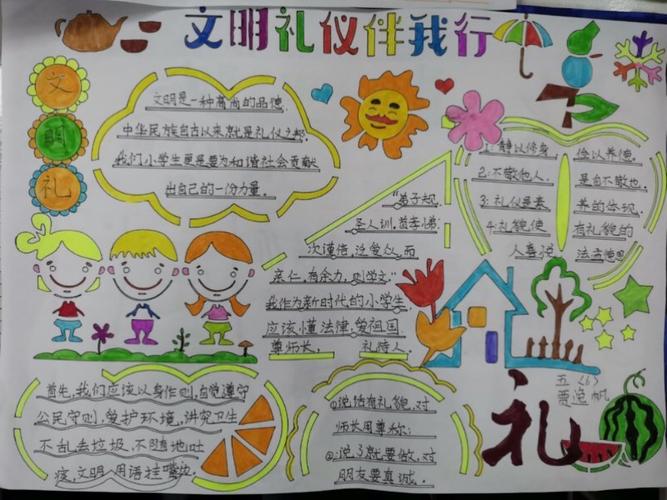 文明礼仪伴我行
文
明
礼
文明是一种高尚的品德.
中华民族自古以来就是礼仪之邦.
我们小学生更是要为和谐社会贡献
出自己的一份力量.
"弟子规.
圣人训,首孝悌;
次谨信,泛爱众,而
亲仁,有余力,则学文"
我作为新时代的小学生
应该懂法律,爱祖国
尊师长, 礼待人.
1:静以修身 俭以养德.
2:不敬他人. 是自不敬也.
3:礼仪是素 养的体现.
4:礼貌使 有礼貌的
人喜悦
首先,我们应该以身作则,自觉遵守
公民守则,爱护环境,讲究卫生
不乱丢垃圾,不随地吐
痰,文明,用语挂嘴边.
①说话有礼貌.对
师长用尊称;
②:说了就要做.对
朋友要真诚.
五(6)
礼